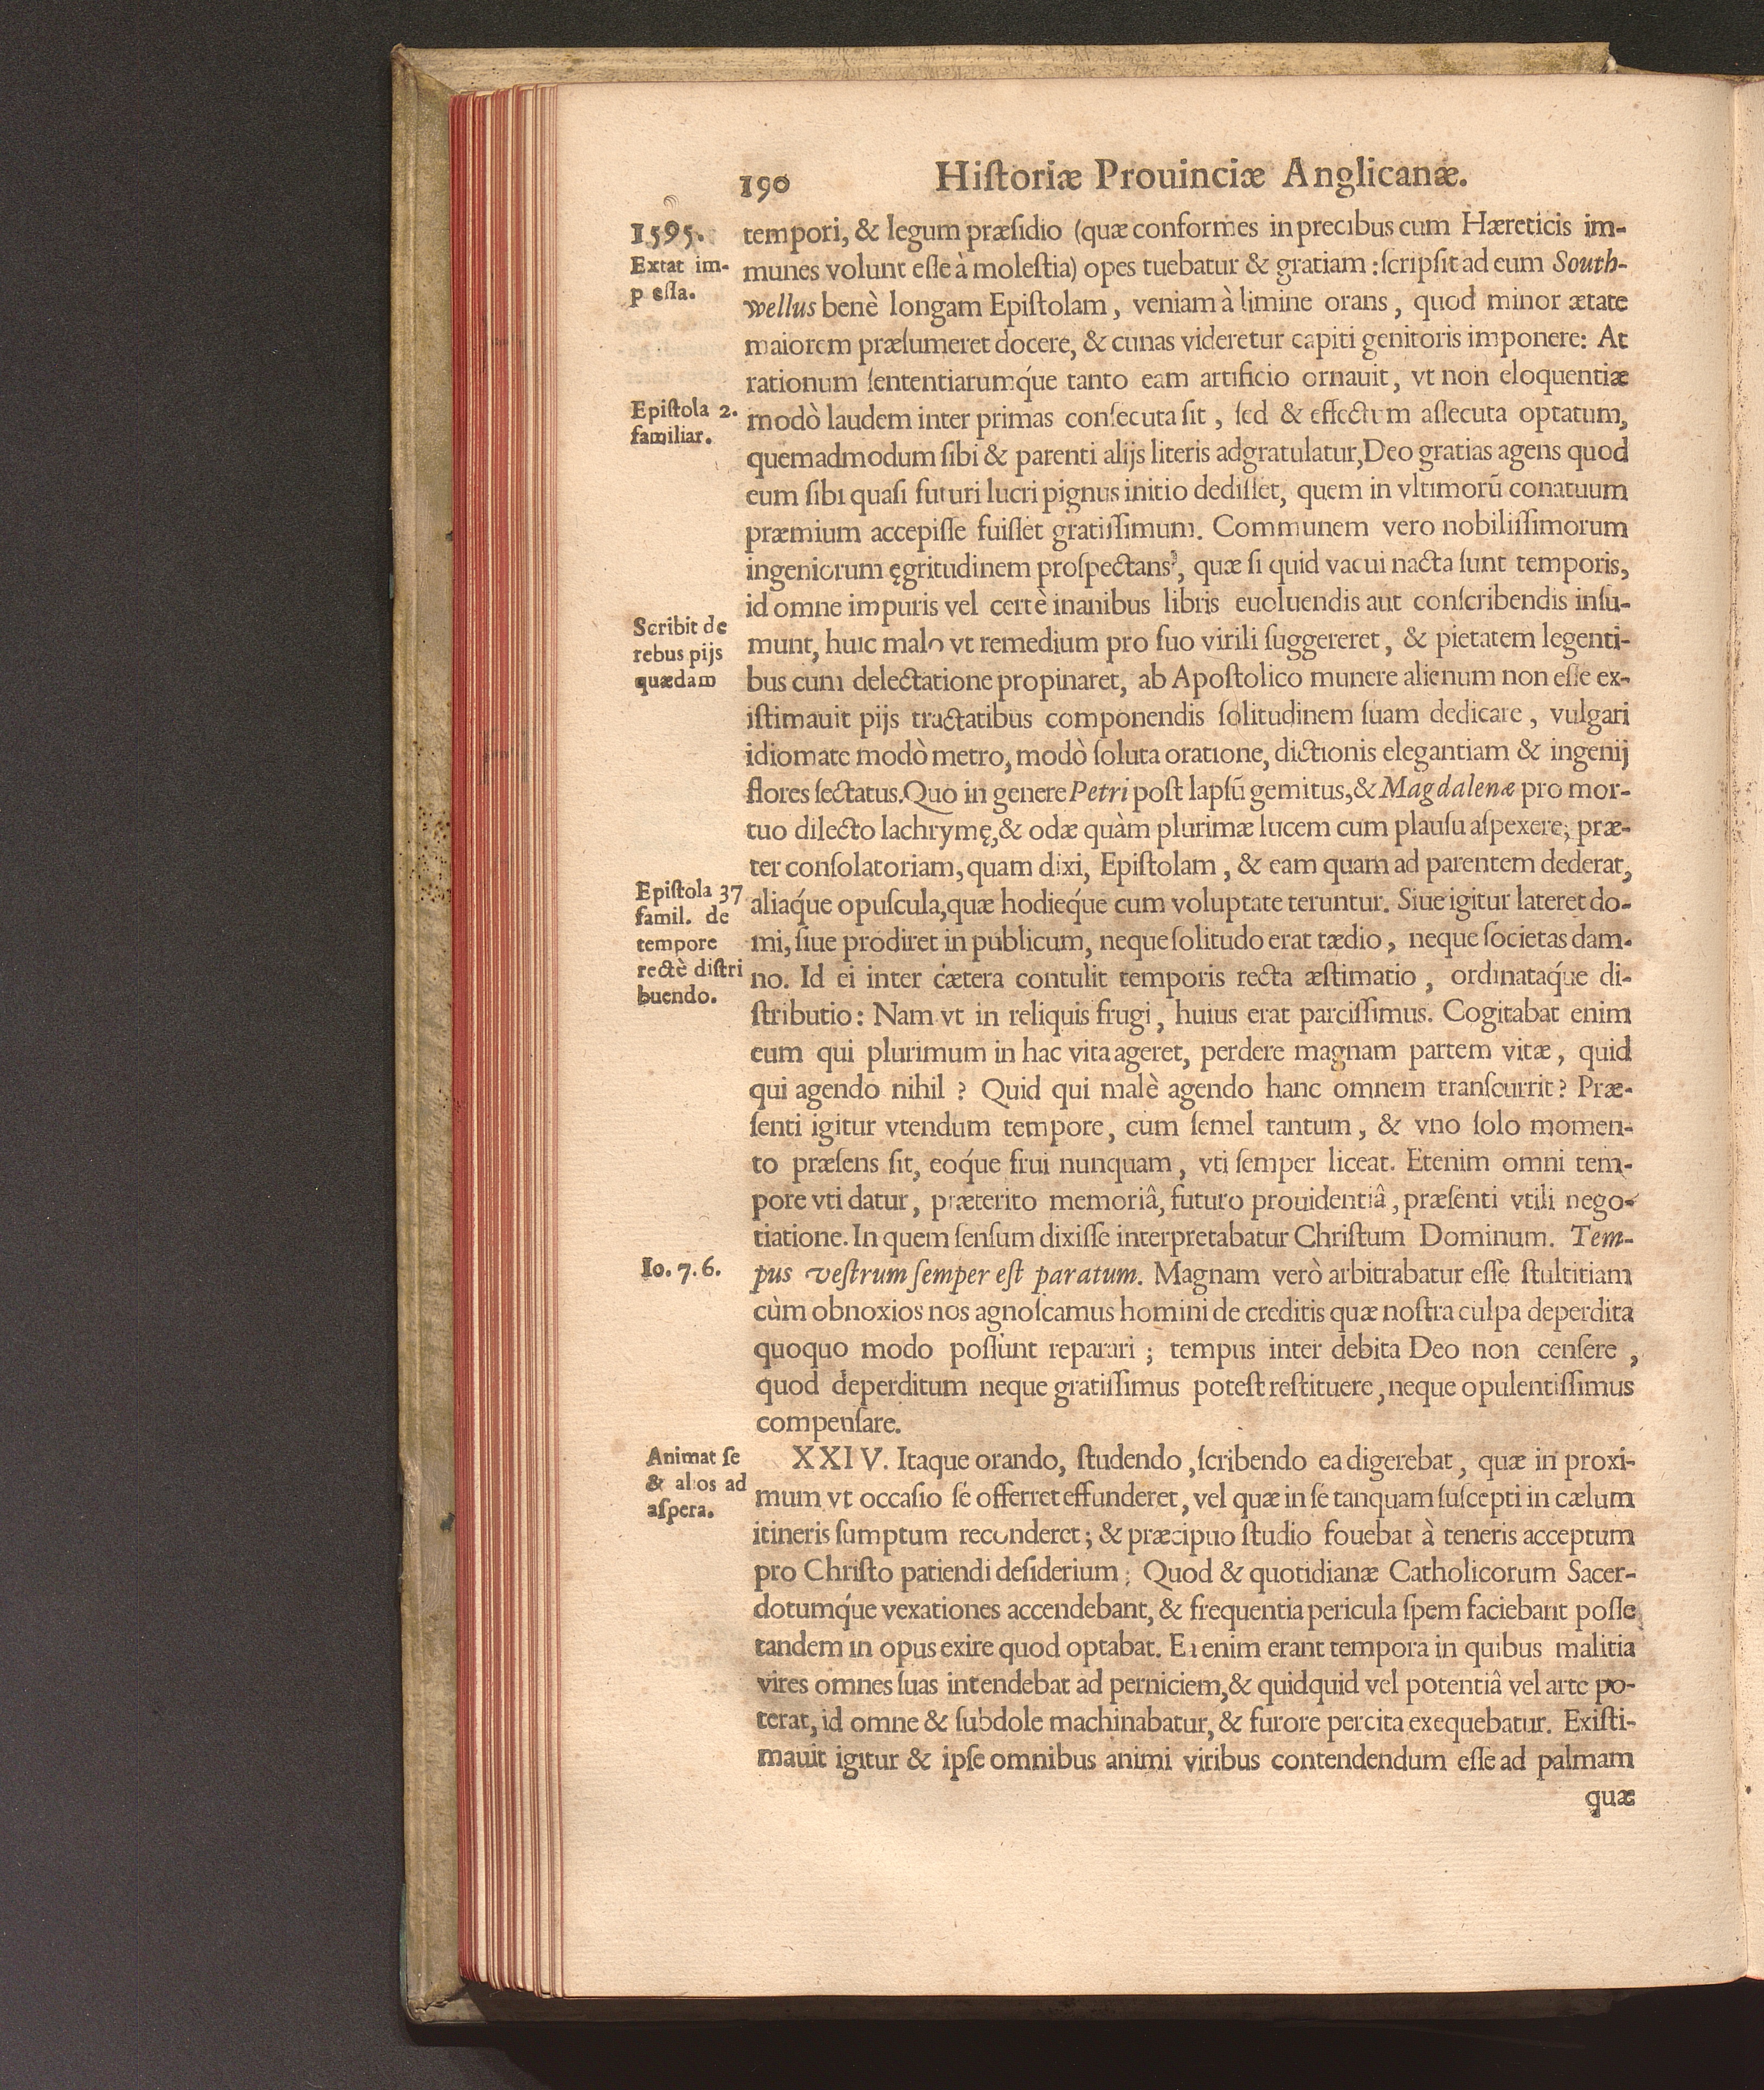 190 Hiſtoriæ Prouinciæ Anglicanæ.
1595.
Extat im-
p eſſa.
Epiſtola 2.
familiar.
Scribit de
rebus pijs
quædam
Epiſtola 37
famil. de
tempore
rectè diſtri
buendo.
Io. 7. 6.
Animat ſe
& al os ad
aſpera.
tempori, & legum præſidio (quæ conformes in precibus cum Hæreticis im-
munes volunt eſſe à moleſtia) opes tuebatur & gratiam: ſcripſit ad eum South-
wellus benè longam Epiſtolam, veniam à limine orans, quod minor ætate
maiorem præſumeret docere, & cunas videretur capiti genitoris imponere: At
rationum ſententiarumq́ue tanto eam artificio ornauit, vt non eloquentiæ
modò laudem inter primas conſecuta ſit, ſed & effectum aſſecuta optatum,
quemadmodum ſibi & parenti alijs literis adgratulatur, Deo gratias agens quod
eum ſibi quaſi futuri lucri pignus initio dediſſet, quem in vltimorū conatuum
præmium accepiſſe fuiſſet gratiſſimum. Communem vero nobiliſſimorum
ingeniorum ęgritudinem proſpectans, quæ ſi quid vacui nacta ſunt temporis,
id omne impuris vel certè inanibus libris euoluendis aut conſcribendis inſu-
munt, huic malo vt remedium pro ſuo virili ſuggereret, & pietatem legenti-
bus cum delectatione propinaret, ab Apoſtolico munere alienum non eſſe ex-
iſtimauit pijs tractatibus componendis ſolitudinem ſuam dedicare, vulgari
idiomate modò metro, modò ſoluta oratione, dictionis elegantiam & ingenij
flores ſectatus. Quo in genere Petri poſt lapſū gemitus, & Magdalenæ pro mor-
tuo dilecto lachrymę, & odæ quàm plurimæ lucem cum plauſu aſpexere; præ-
ter conſolatoriam, quam dixi, Epiſtolam, & eam quam ad parentem dederat,
aliaq́ue opuſcula, quæ hodieq́ue cum voluptate teruntur. Siue igitur lateret do-
mi, ſiue prodiret in publicum, neque ſolitudo erat tædio, neque ſocietas dam-
no. Id ei inter cætera contulit temporis recta æſtimatio, ordinataq́ue di-
ſtributio: Nam vt in reliquis frugi, huius erat parciſſimus. Cogitabat enim
eum qui plurimum in hac vita ageret, perdere magnam partem vitæ, quid
qui agendo nihil? Quid qui malè agendo hanc omnem tranſcurrit? Præ-
ſenti igitur vtendum tempore, cum ſemel tantum, & vno ſolo momen-
to præſens ſit, eoq́ue frui nunquam, vti ſemper liceat. Etenim omni tem-
pore vti datur, præterito memoriâ, futuro prouidentiâ, præſenti vtili nego-
tiatione. In quem ſenſum dixiſſe interpretabatur Chriſtum Dominum. Tem-
pus veſtrum ſemper eſt paratum. Magnam verò arbitrabatur eſſe ſtultitiam
cùm obnoxios nos agnoſcamus homini de creditis quæ noſtra culpa deperdita
quoquo modo poſſunt reparari; tempus inter debita Deo non cenſere,
quod deperditum neque gratiſſimus poteſt reſtituere, neque opulentiſſimus
compenſare.
XXIV. Itaque orando, ſtudendo, ſcribendo ea digerebat, quæ in proxi-
mum vt occaſio ſe offerret effunderet, vel quæ in ſe tanquam ſuſcepti in cælum
itineris ſumptum reconderet; & præcipuo ſtudio fouebat à teneris acceptum
pro Chriſto patiendi deſiderium: Quod & quotidianæ Catholicorum Sacer-
dotumq́ue vexationes accendebant, & frequentia pericula ſpem faciebant poſſe
tandem in opus exire quod optabat. Ea enim erant tempora in quibus malitia
vires omnes ſuas intendebat ad perniciem, & quidquid vel potentiâ vel arte po-
terat, id omne & ſubdole machinabatur, & furore percita exequebatur. Exiſti-
mauit igitur & ipſe omnibus animi viribus contendendum eſſe ad palmam
quæ